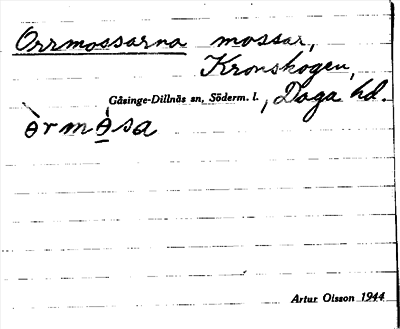 Orrmossarna mossar,
Kronskogen,
Gåsinge-Dillnäs sn, Söderm. l., Daga hd.
òrmòsa
Artur Olsson 1944